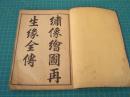 繡像繪圖再
生緣全傳